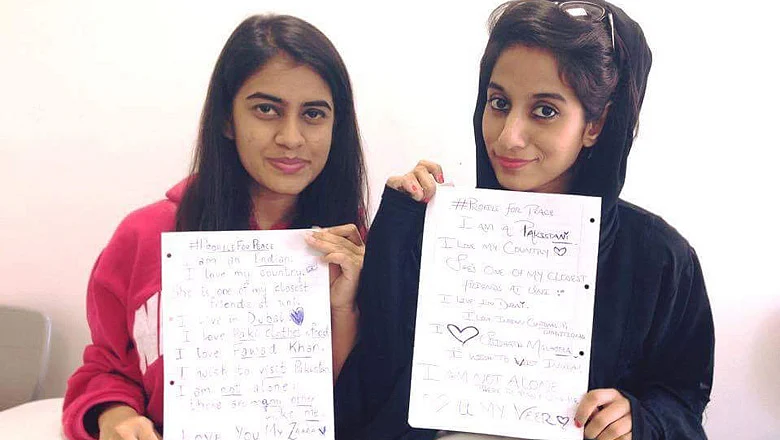 #ProfileForPeace
I am an Indian.
I love my country.
She is one of my closest
friends at uni.
I live in Dubai
I love Paki clothes & food
I love Fawad Khan.
I wish to visit Pakistan
I am not alone,
there are many other
like me.
LOVE YOU MY ZAARA
#PROFILE FOR PEACE
I AM A PAKISTANI
I LOVE MY COUNTRY
SHE'S ONE OF MY CLOSEST
FRIENDS AT UNI
I LIVE IN DUBAI.
I LOVE INDIAN CUISINE &
TRADITIONS
I SIDHARTH MALHOTRA
I WISH TO VISIT INDIA
I AM NOT ALONE
LIKE ME
MY VEER